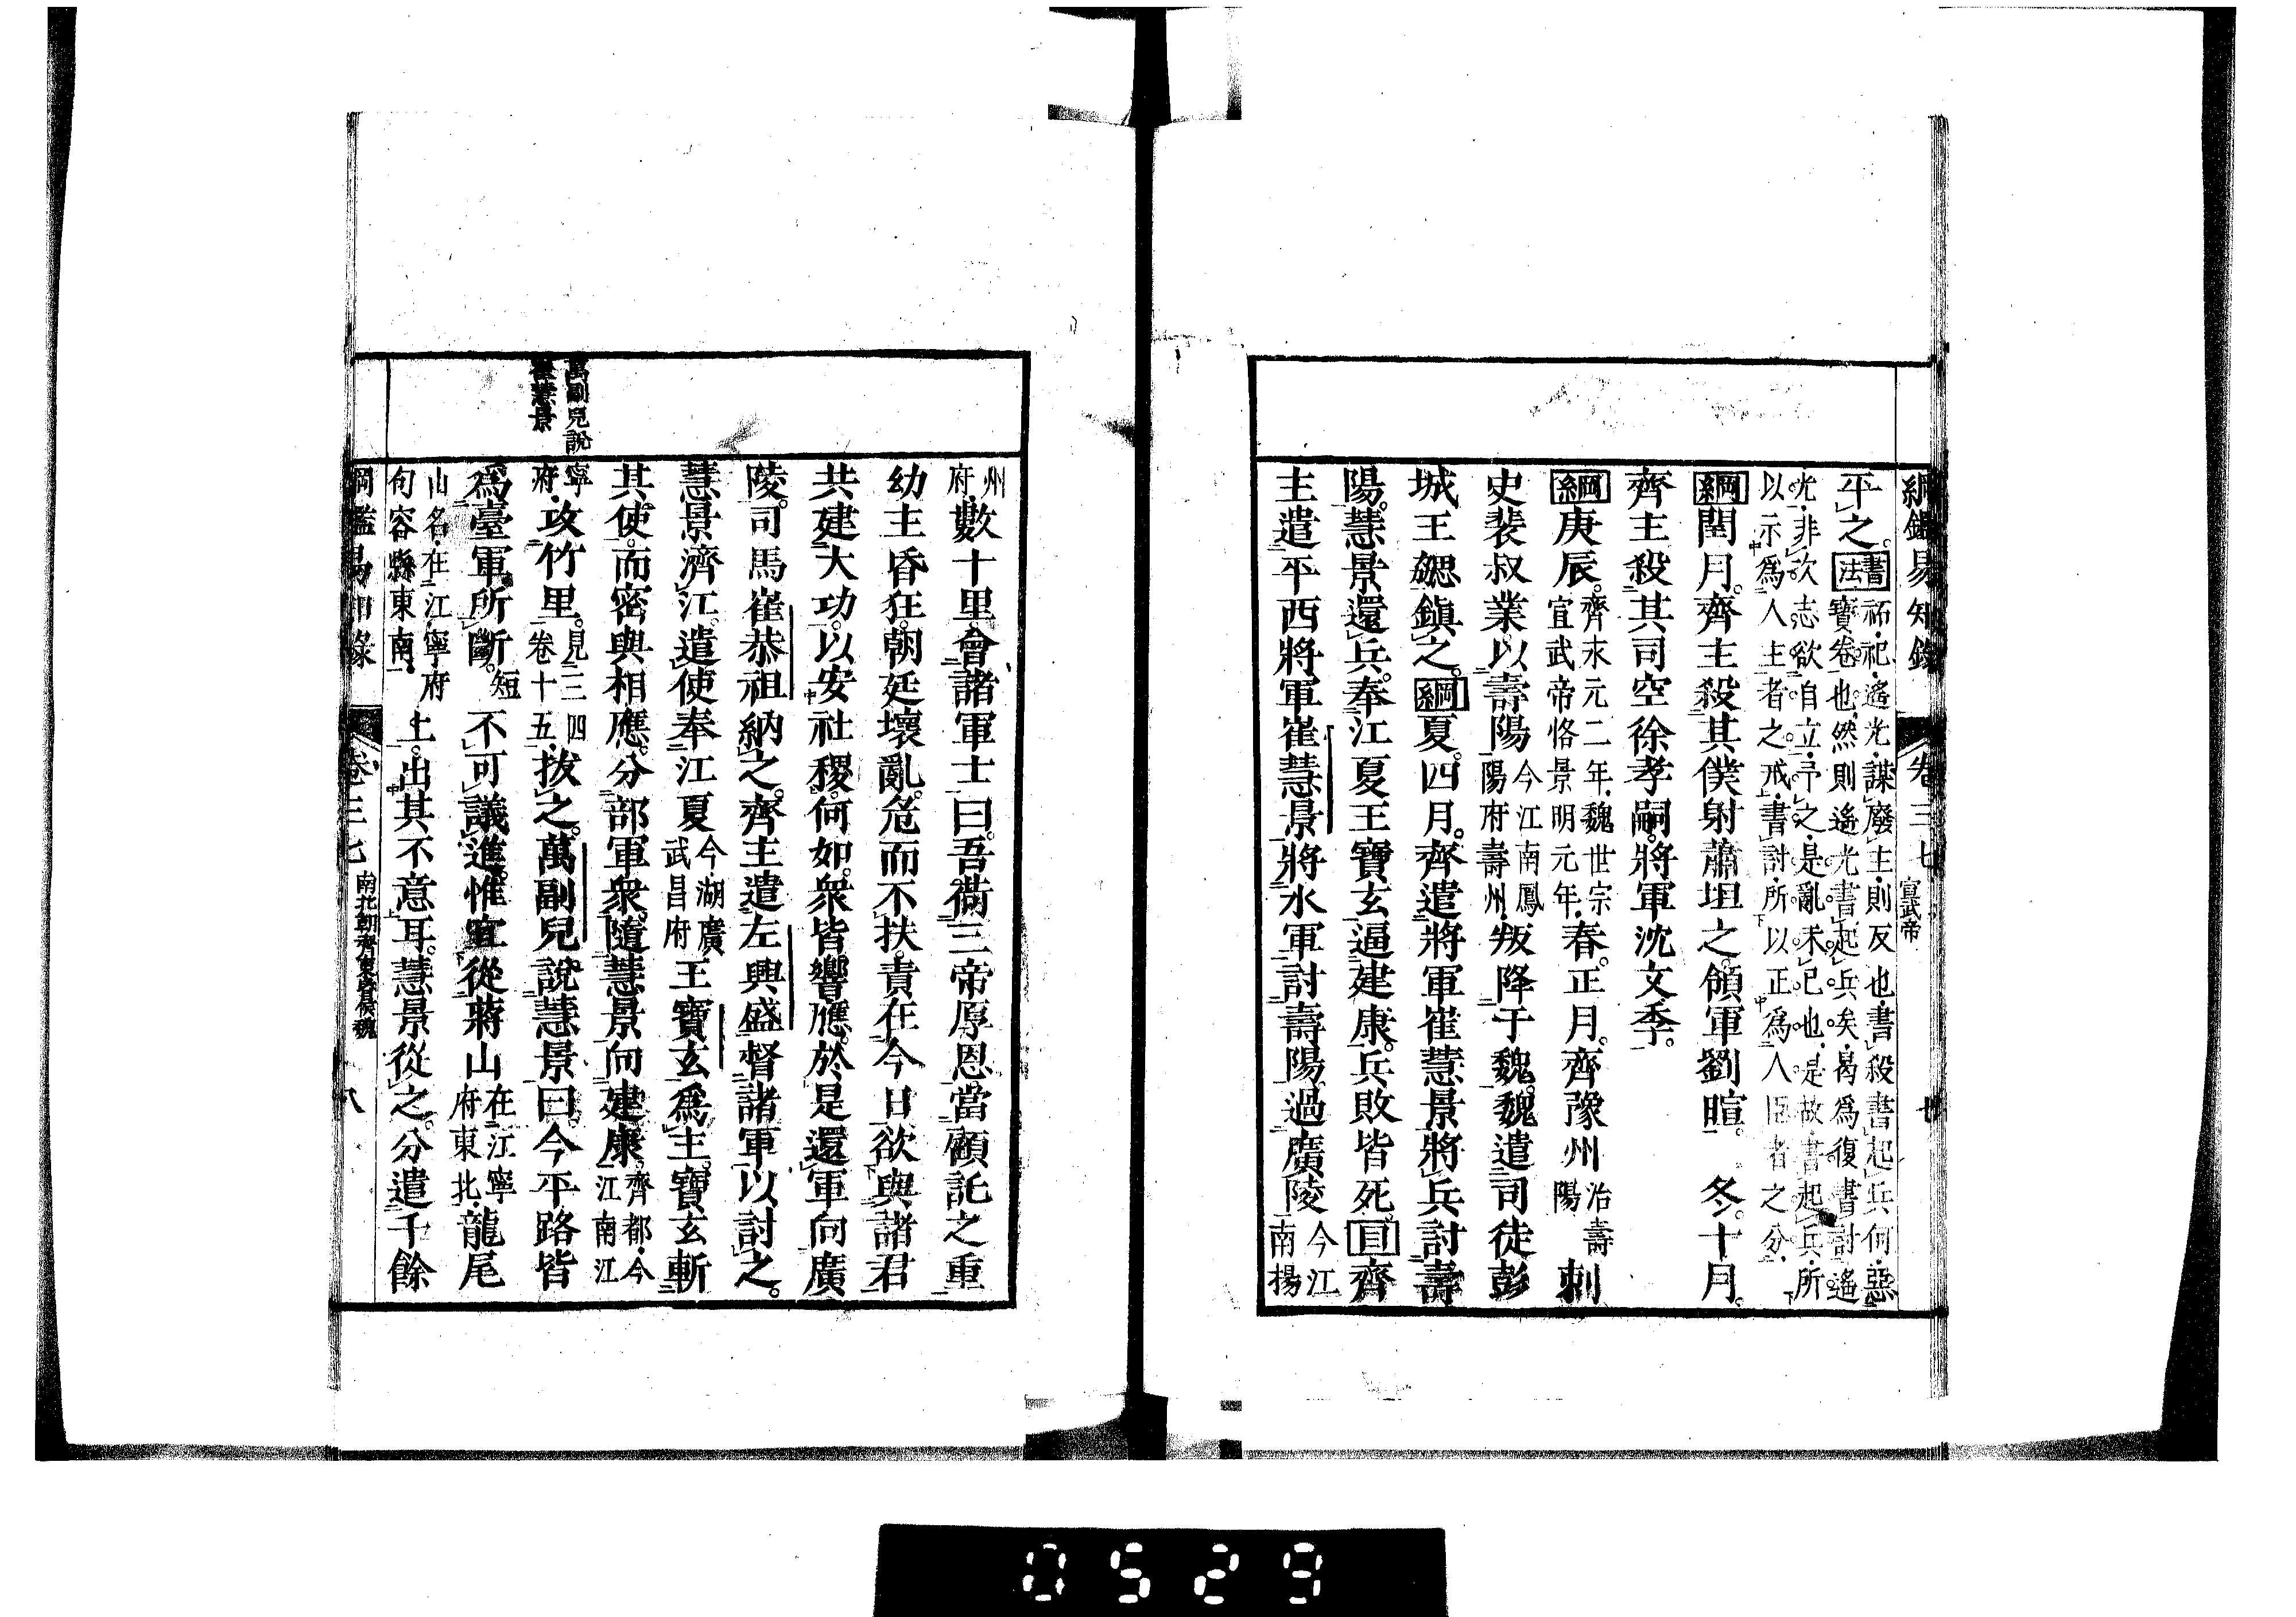 綱鑑易知錄 卷三七 宣武帝 七
平之。書法祏祀遙光謀廢主則反也書殺書起兵何惡寶卷也然則遙光書起兵矣曷爲復書討遙
光非次志欲自立予之是亂未已也是故書起兵所以示爲人主者之戒書討所以正爲人臣者之分
綱閏月。齊主殺其僕射蕭坦之領軍劉暄。冬。十月。
齊主殺其司空徐孝嗣將軍沈文季。
綱庚辰。齊末元二年魏世宗宣武帝恪景明元年春。正月。齊豫州治壽陽刺
史裴叔業以壽陽今江南鳳陽府壽州叛降于魏。魏遣司徒彭
城王勰鎮之。綱夏。四月。齊遣將軍崔慧景將兵討壽
陽。慧景還兵。奉江夏王寶玄逼建康。兵敗皆死。目齊
主遣平西將軍崔慧景將水軍討壽陽過廣陵今江南揚
州府數十里會諸軍士曰。吾荷三帝厚恩當顧託之重
幼主昏狂。朝廷壞亂。危而不扶。責在今日。欲與諸君
共建大功。以安社稷。何如。衆皆響應。於是還軍向廣
陵。司馬崔恭祖納之。齊主遣左興盛督諸軍以討之。
慧景濟江。遣使奉江夏今湖廣武昌府王寶玄爲主。寶玄斬
其使。而密與相應。分部軍衆。隨慧景向建康。齊都今江南江
寧府攻竹里。見三四卷十五拔之。萬副兒說慧景曰。今平路皆
爲臺軍所斷。短不可議進。惟宜從蔣山在江寧府東北龍尾
山名在江寧府句容縣東南上。出其不意耳。慧景從之。分遣千餘
萬副兒說崔慧景
綱鑑易知錄 卷三七 南北朝齊東昏侯魏 八
0529